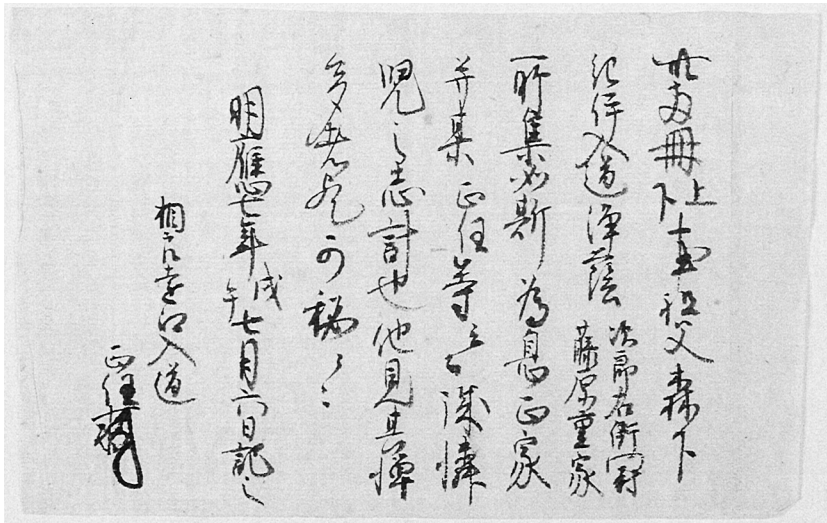 此双冊上下曾祖父森下
紀伊入道浄蔭次郎右衛門尉藤原重家
所集如斯為息正家
并某正任等也誠憐
児之志計也他見其憚
多者也可秘々々
明應七年戊午七月六日記之
相良遠江入道
正任